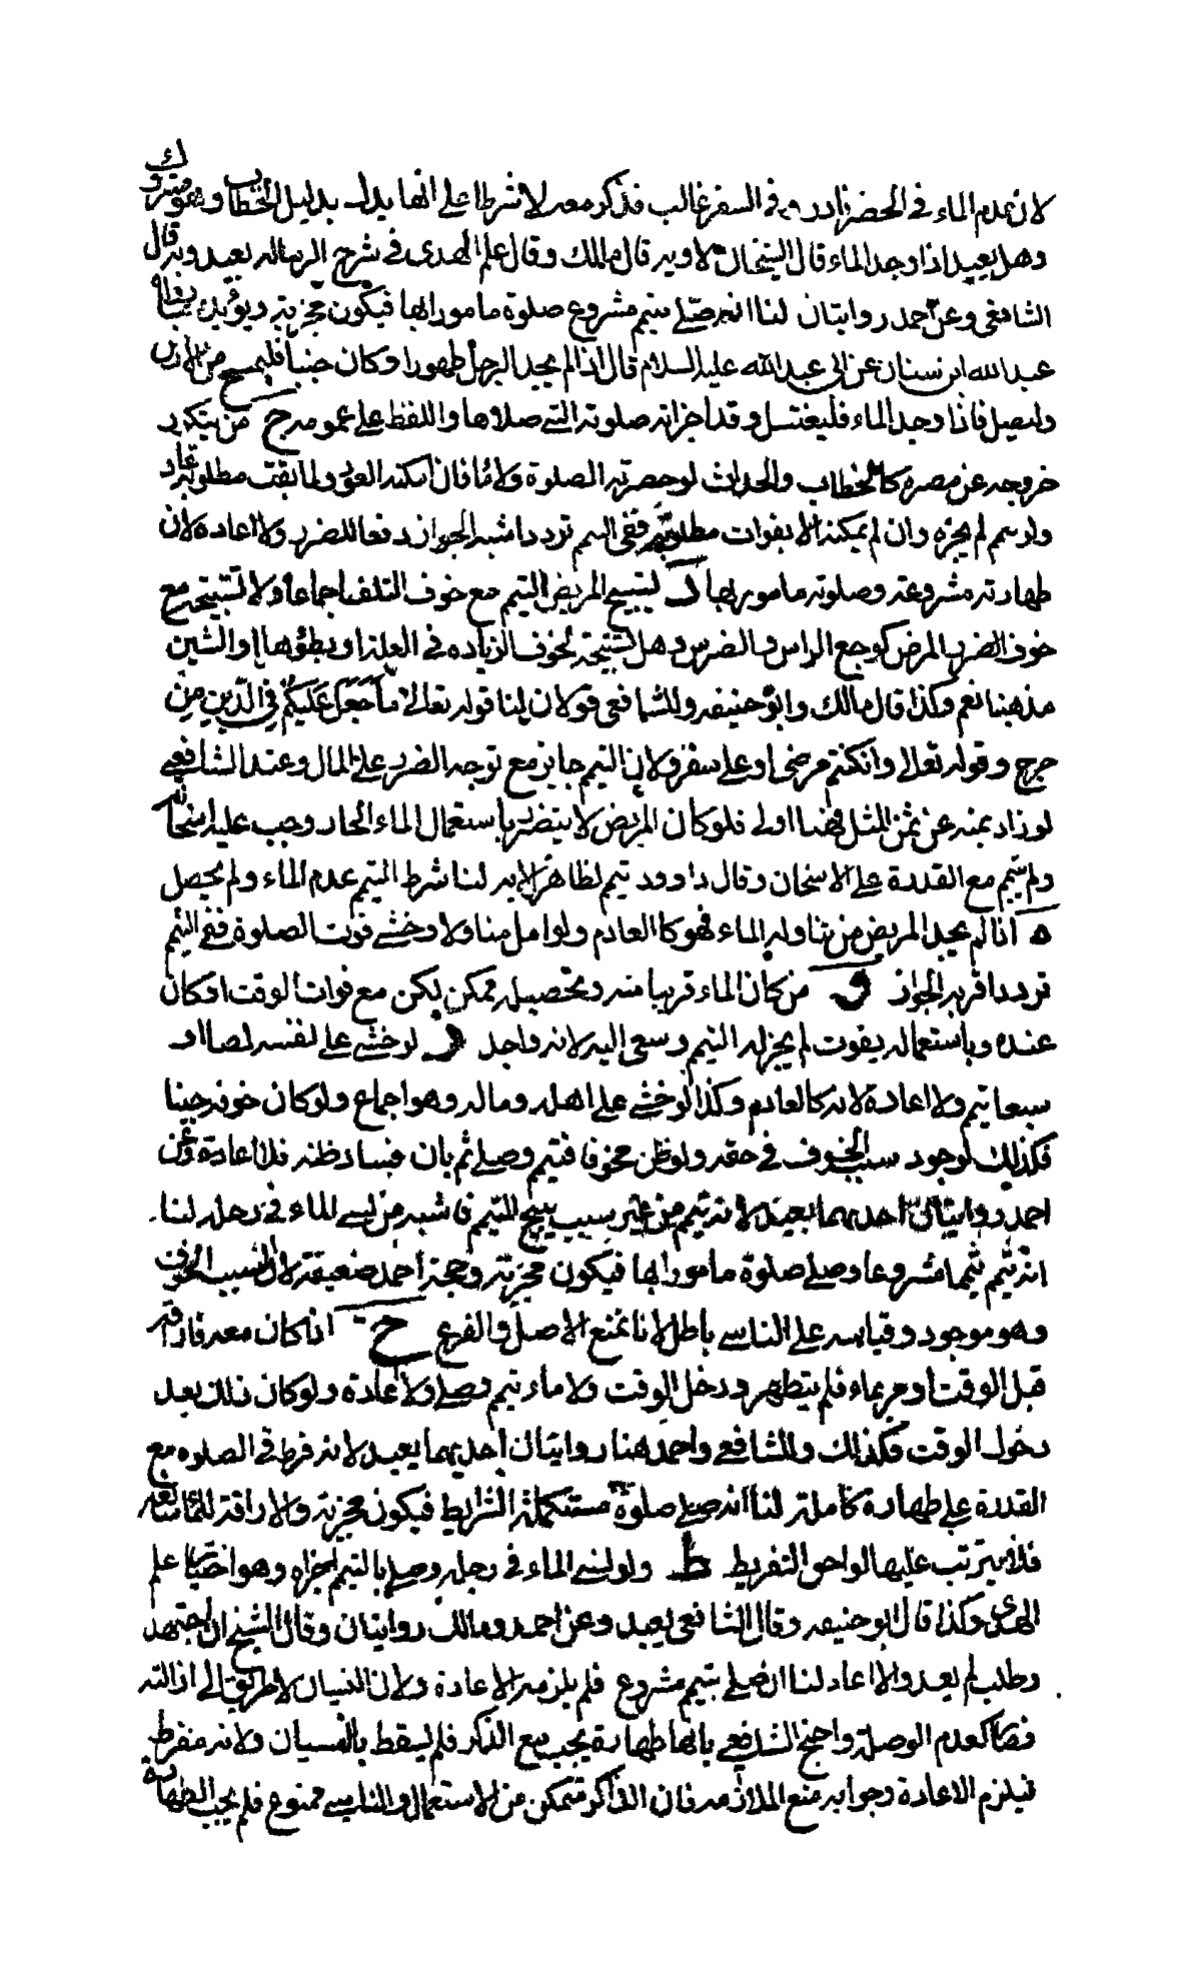 لان عدم الماء في الحضر نادر و في السفر غالب فذكر معه لا شرطا على انها يدل بدليل الخطاب وهو متروك
وهل يعيد اذا وجد الماء قال الشيخان لا وبه قال مالك وقال علم الهدى في شرح الرساله يعيد وبه قال
الشافعي وعن احمد روايتان لنا انه صلى بتيمم مشروع صلوة مامورا بها فيكون مجزية ويؤيده رواية
عبدالله ابن سنان عن ابي عبدالله عليه السلام قال اذا لم يجد الرجل طهورا وكان جنبا فليمسح من الارض
وليصل فاذا وجد الماء فليغتسل وقد اجزاته صلوته التي صلاها واللفظ على عمومه ج من يتكرر
خروجه عن مصره كالحطاب والحراث لو حضرته الصلوة ولا ماء فان امكنه العود ولما يفت مطلوبه عاد
ولو تيمم لم يجزه وان لم يمكنه الا بفوات مطلوبه ففي التيمم تردد اشبهه الجواز دفعا للضرر ولا اعادة لان
طهارته مشروعة وصلوته مامور بها د يستبيح المريض التيمم مع خوف التلف اجماعا ولا يستبيحه مع
خوف الضرر بالمرض كوجع الراس والضرس وهل يستبيحه لخوف الزياده في العلة او بطؤها او الشين
مذهبنا نعم وكذا قال مالك وابو حنيفه وللشافعي قولان لنا قوله تعالى ما جعل عليكم في الدين من
حرج وقوله تعالى وان كنتم مرضى او على سفر ولان التيمم جايز مع توجه الضرر على المال وعند الشافعي
لو زاد ثمنه عن ثمن المثل فهنا اولى فلو كان المريض لا يتضرر باستعمال الماء الحار وجب عليه اسخانه
ولم يتيمم مع القدرة على الاسخان وقال داوود تيمم لظاهر الايه لنا شرط التيمم عدم الماء ولم يحصل
ه اذا لم يجد المريض من يناوله الماء فهو كالعادم ولو امل مناولا وخشي فوت الصلوة ففي التيمم
تردد اقربه الجواز و من كان الماء قريبا منه وتحصيله ممكن لكن مع فوات الوقت او كان
عنده وباستعماله يفوت لم يجز له التيمم وسعى اليه لانه واجد ز لو خشي على نفسه لصا او
سبعا تيمم ولا اعادة لانه كالعادم وكذا لو خشي على اهله وماله وهو اجماع ولو كان خوفه جبنا
فكذلك لوجود سبب الخوف في حقه ولو ظن مخوفا فتيمم وصلى ثم بان فساد ظنه فلا اعادة وعن
احمد روايتان احديهما يعيد لانه تيمم من غير سبب يبيح التيمم فاشبه من نسي الماء في رحله لنا
انه تيمم تيمما مشروعا وصلى صلوة مامورا بها فيكون مجزية وحجة احمد ضعيفة لان السبب الخوف
وهو موجود وقياسه على الناسي باطل لانا نمنع الاصل والفرع ح اذا كان معه فاراقه
قبل الوقت او مر بماء فلم يتطهر ودخل الوقت ولا ماء تيمم وصلى ولا اعادة ولو كان ذلك بعد
دخول الوقت فكذلك وللشافعي واحمد هنا روايتان احديهما يعيد لانه فرط في الصلوه مع
القدرة على طهارة كاملة لنا انه صلى صلوة مستكملة الشرايط فيكون مجزية والاراقة للماء سايغه
فلا يترتب عليها لواحق التفريط ط ولو نسي الماء في رحله وصلى بالتيمم اجزاه وهو اختيار علم
الهدى وكذا قال ابو حنيفه وقال الشافعي يعيد وعن احمد ومالك روايتان وقال الشيخ ان اجتهد
وطلب لم يعد والا اعاد لنا انه صلى بتيمم مشروع فلم يلزمه الاعادة ولان النسيان لا طريق الى ازالته
فصار كعدم الوصلة واحتج الشافعي بانها طهارة يجب مع الذكر فلم يسقط بالنسيان ولانه مفرط
فيلزم الاعادة وجوابه منع الملازمه فان الذاكر متمكن من الاستعمال والناسي ممنوع فلم يجب الطهارة